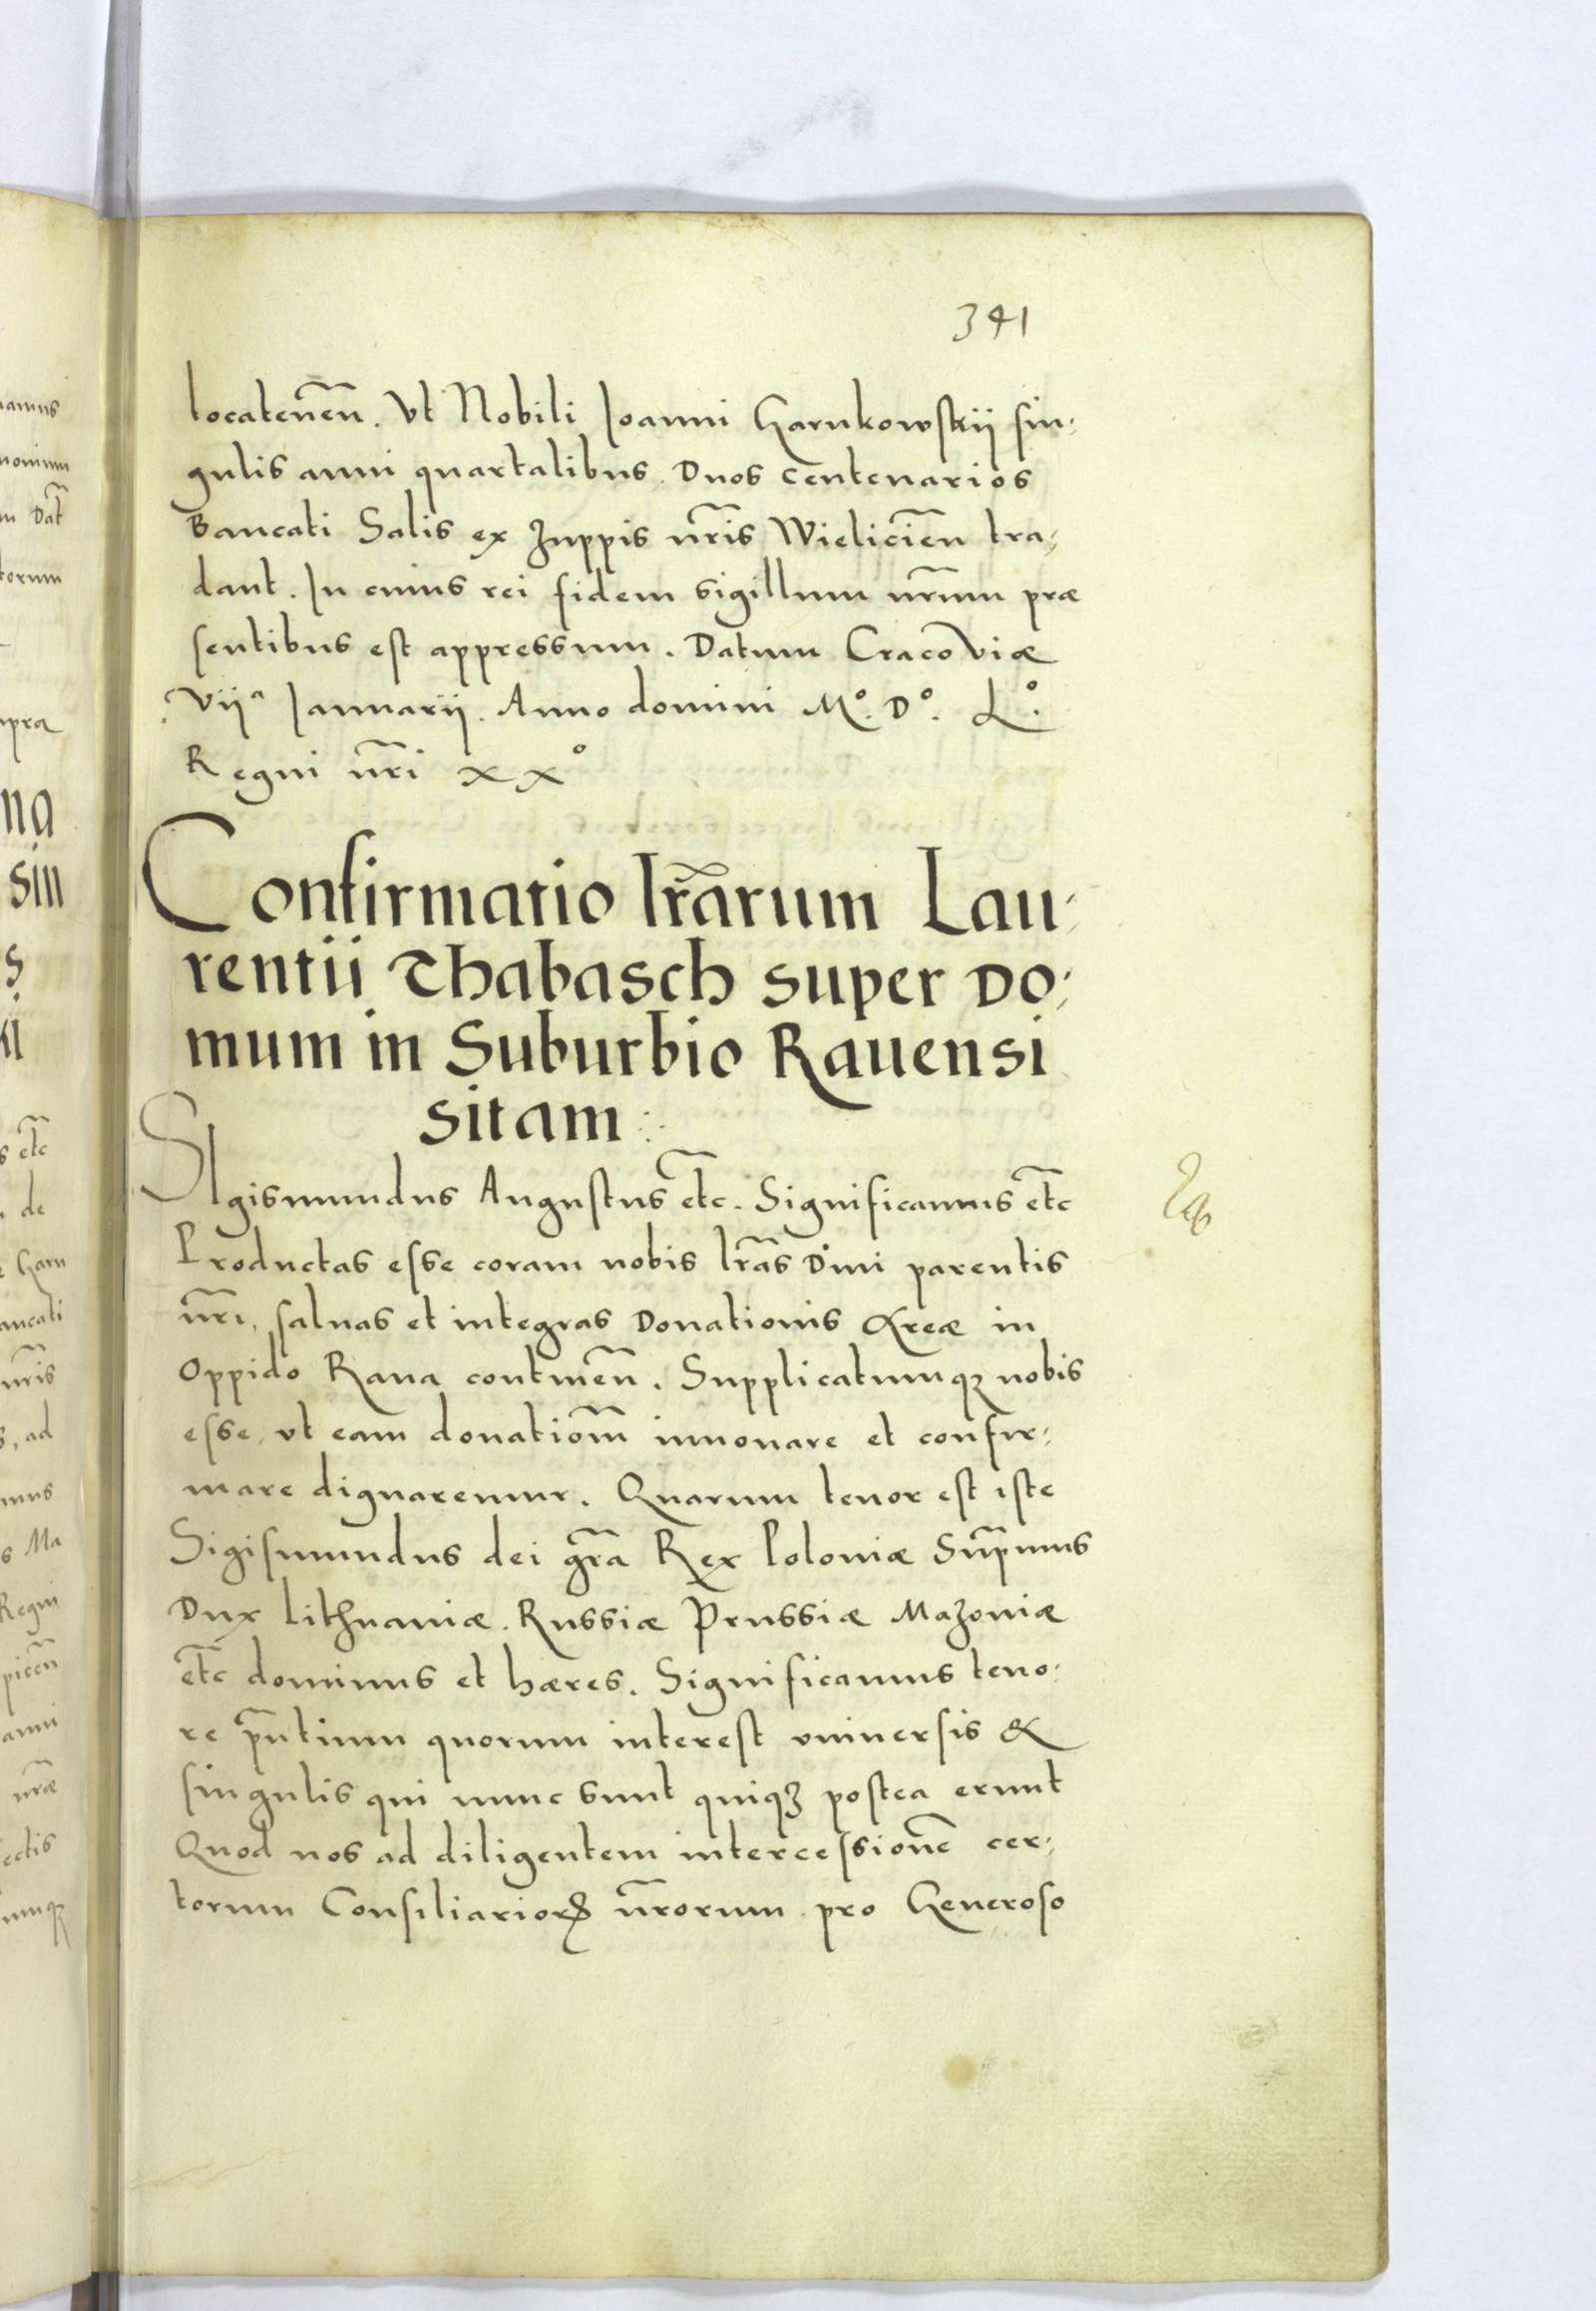 341
locatenen̅. Vt Nobili Ioanni Gharnkowskii sin:
gulis anni quartalibus. Duos Centenarios
Bancati Salis ex Zuppis nr̅is Wielicien̅ tra:
dant. In cuius rei fidem sigillum nr̅um præ
sentibus est appressum. Datum Cracoviæ
Viiª Ianuarii. Anno domini M°. D°. L°.
Regni nr̅i xx°
Confirmatio lr̅arum Lau:
rentii Thabasch super Do:
mum in Suburbio Rauensi
sitam:
SIgismundus Augustus etc̅. Significamus etc̅
Productas esse coram nobis lr̅as Diui parentis
nr̅i, saluas et integras Donationis Areæ in
Oppido Raua continen̅. Supplicatumqꝫ nobis
esse, vt eam donatiom̅ innouare et confir:
mare dignaremur. Quarum tenor est iste
Sigismundus dei gr̅a Rex Poloniæ Supr̅mus
Dux Lithuaniæ. Russiæ Prussiæ Mazoniæ
etc̅ dominus et hæres. Significamus teno:
re pn̅tium quorum interest vniuersis &
singulis qui nunc sunt quiqꝫ postea erunt
Quod nos ad diligentem intercessione̅ cer:
torum Consiliarioꝝ nr̅orum pro Generoso
namus
m Dat̅
torum
upra
na
sin
s etc̅
de
ancati
nr̅is
s, ad
mus
s Ma
Regni
anni
nr̅æ
ectis
umqꝫ